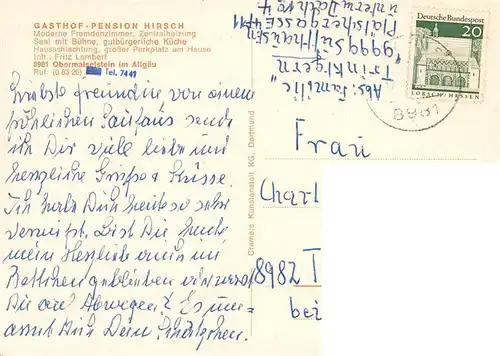 GASTHOF-PENSION HIRSCH
Moderne Fremdenzimmer, Zentralheizung
Saal mit Bühne, gutbürgerliche Küche
Hausschlachtung, großer Parkplatz am Hause
Inh.: Fritz Lambert
8981 Obermaiselstein im Allgäu
Ruf: (0 83 26) Tel. 7441
Liebste Freundin von einem
fröhlichen sende
ich Dir viele liebe und
herzliche Grüße + Küsse.
Ich habe Dich heute so sehr
vermisst. Bist Du heute
mein Herzlieb auch im
geblieben oder warst
Du auf Abwegen? Es um-
armt Dich Dein
Cramers Kunstanstalt KG, Dortmund
Abs: Familie
"Trinkgern"
9999 Saufhausen
4/11
unterm Dach
Deutsche Bundespost
20
LORSCH/HESSEN
8981
Frau
Charl
8982 T
bei